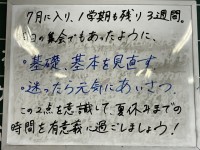 7月に入り、1学期も残り3週間。
1日の集会でもあったように、
・基礎 基本を見直す
・迷ったら元気にあいさつ
この2点を意識して、夏休みまでの
時間を有意義に過ごしましょう!